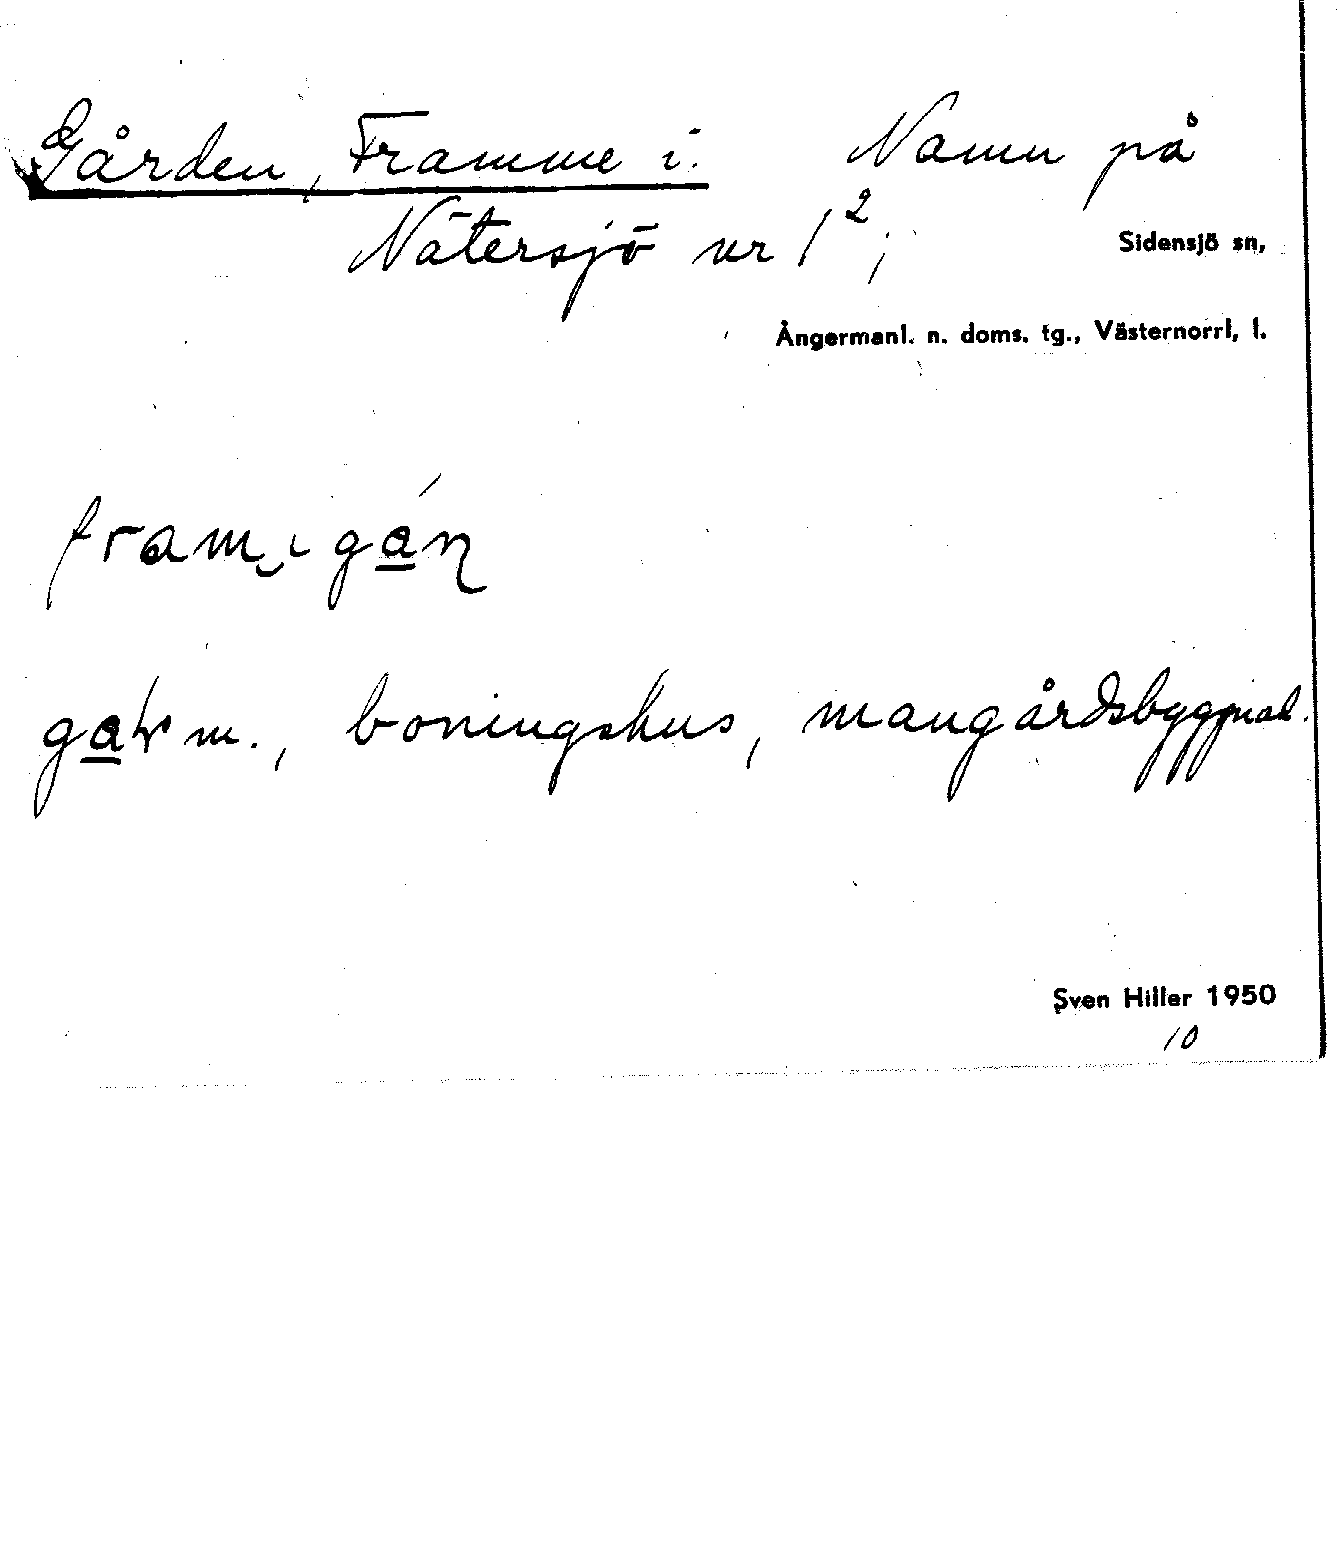 Gården, Framme i. Namn på
Nätersjö nr 1²;
Sidensjö sn,
Ångermanl. n. doms. tg., Västernorrl, l.
fram‿ι ga̱´ɳ
m., boningshus, mangårdsbyggnad.
Sven Hiller 1950
10